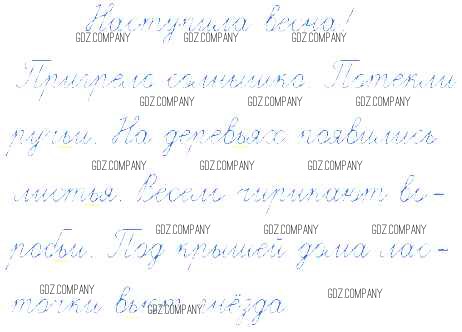 Наступила весна!
GDZ.COMPANY GDZ.COMPANY GDZ.COMPANY
Пригрело солнышко. Потекли
GDZ.COMPANY GDZ.COMPANY GDZ.COMPANY
ручьи. На деревьях появились
GDZ.COMPANY GDZ.COMPANY GDZ.COMPANY
листья. Весело чирикают во-
GDZ.COMPANY GDZ.COMPANY GDZ.COMPANY
робьи. Под крышей дома лас-
GDZ.COMPANY GDZ.COMPANY GDZ.COMPANY
точки вьют гнёзда